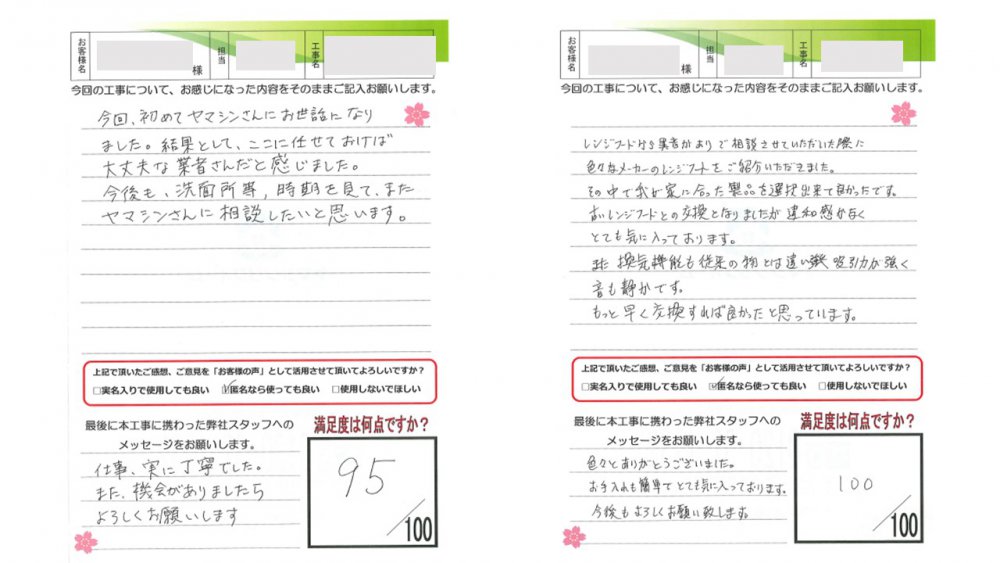 お客様名
様
担当
工事名
今回の工事について、お感じになった内容をそのままご記入お願いします。
今回、初めてヤマシンさんにお世話になり
ました。結果として、ここに任せておけば
大丈夫な業者さんだと感じました。
今後も、洗面所等，時期を見て、また
ヤマシンさんに相談したいと思います。
上記で頂いたご感想、ご意見を「お客様の声」として活用させて頂いてよろしいですか？
□実名入りで使用しても良い ☑匿名なら使っても良い □使用しないでほしい
最後に本工事に携わった弊社スタッフへの
メッセージをお願いします。
仕事、実に丁寧でした。
また、機会がありましたら
よろしくお願いします
満足度は何点ですか？
95
/100
お客様名
様
担当
工事名
今回の工事について、お感じになった内容をそのままご記入お願いします。
レンジフードから異音がありで相談させていただいた際に
色々なメーカーのレンジフードをご紹介いただきました。
その中で我が家に合った製品を選択出来て良かったです。
古いレンジフードとの交換となりましたが違和感がなく
とても気に入っております。
また換気機能も従来の物とは違い 吸引力が強く
音も静かです。
もっと早く交換すれば良かったと思っています。
上記で頂いたご感想、ご意見を「お客様の声」として活用させて頂いてよろしいですか？
□実名入りで使用しても良い ☑匿名なら使っても良い □使用しないでほしい
最後に本工事に携わった弊社スタッフへの
メッセージをお願いします。
色々とありがとうございました。
お手入れも簡単でとても気に入っております。
今後もよろしくお願い致します。
満足度は何点ですか？
100
/100